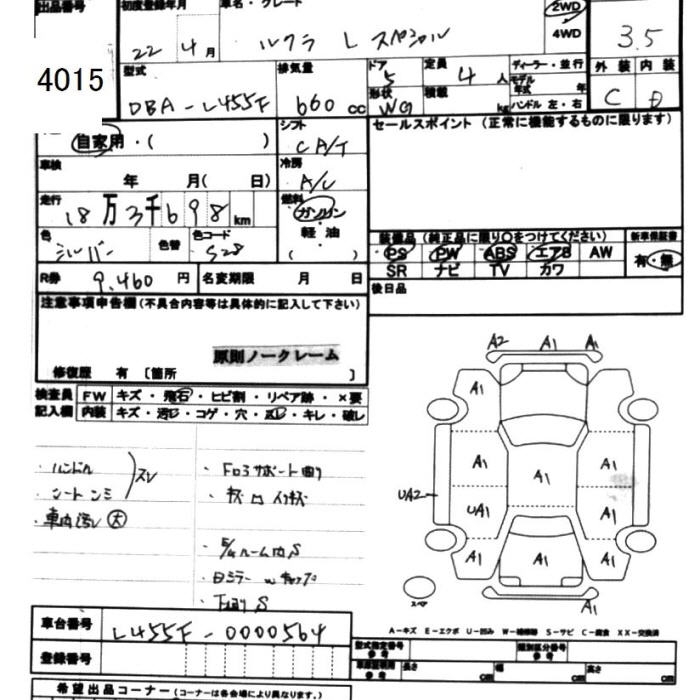 出品番号
4015
初度登録年月
22年4月
車名・グレード
ルクラ L スペシャル
2WD
4WD
3.5
型式
DBA-L455F
排気量
660cc
ドア
5
形状
WG
定員
4人
積載
kg
ディーラー・並行
モデル年式 年
ハンドル 左・右
外装
C
内装
D
自家用・( )
シフト
CA/T
車検
年 月( 日)
冷房
A/C
走行
18万3千698km
燃料
ガソリン
軽油
( )
色
シルバー
色替
色コード
S28
R券
9,460円
名変期限 月 日
セールスポイント (正常に機能するものに限ります)
装備品 (純正品に限り○をつけてください)
PS PW ABS エアB AW
SR ナビ TV カワ
新車保証書
有・無
後日品
注意事項申告欄 (不具合内容等は具体的に記入して下さい)
原則ノークレーム
修復歴 有 〔箇所 〕
検査員記入欄
FW キズ・飛石・ヒビ割・リペア跡・×要
内装 キズ・汚レ・コゲ・穴・スレ・キレ・破レ
・ハンドル
・シート
スレ
・車内汚レ 大
・キズ
A2 A1 A1
A1
A1 A1 A1
UA2 UA1 A1
A1 A1 A1
A1
スペア
A-キズ E-エクボ U-凹み W-補修跡 S-サビ C-腐食 XX-交換済
車台番号
L455F-0000564
登録番号
型式指定番号
参考
類別区分番号
参考
車両諸元
参考
長さ cm
幅 cm
高さ cm
希望出品コーナー (コーナーは各会場により異なります。)